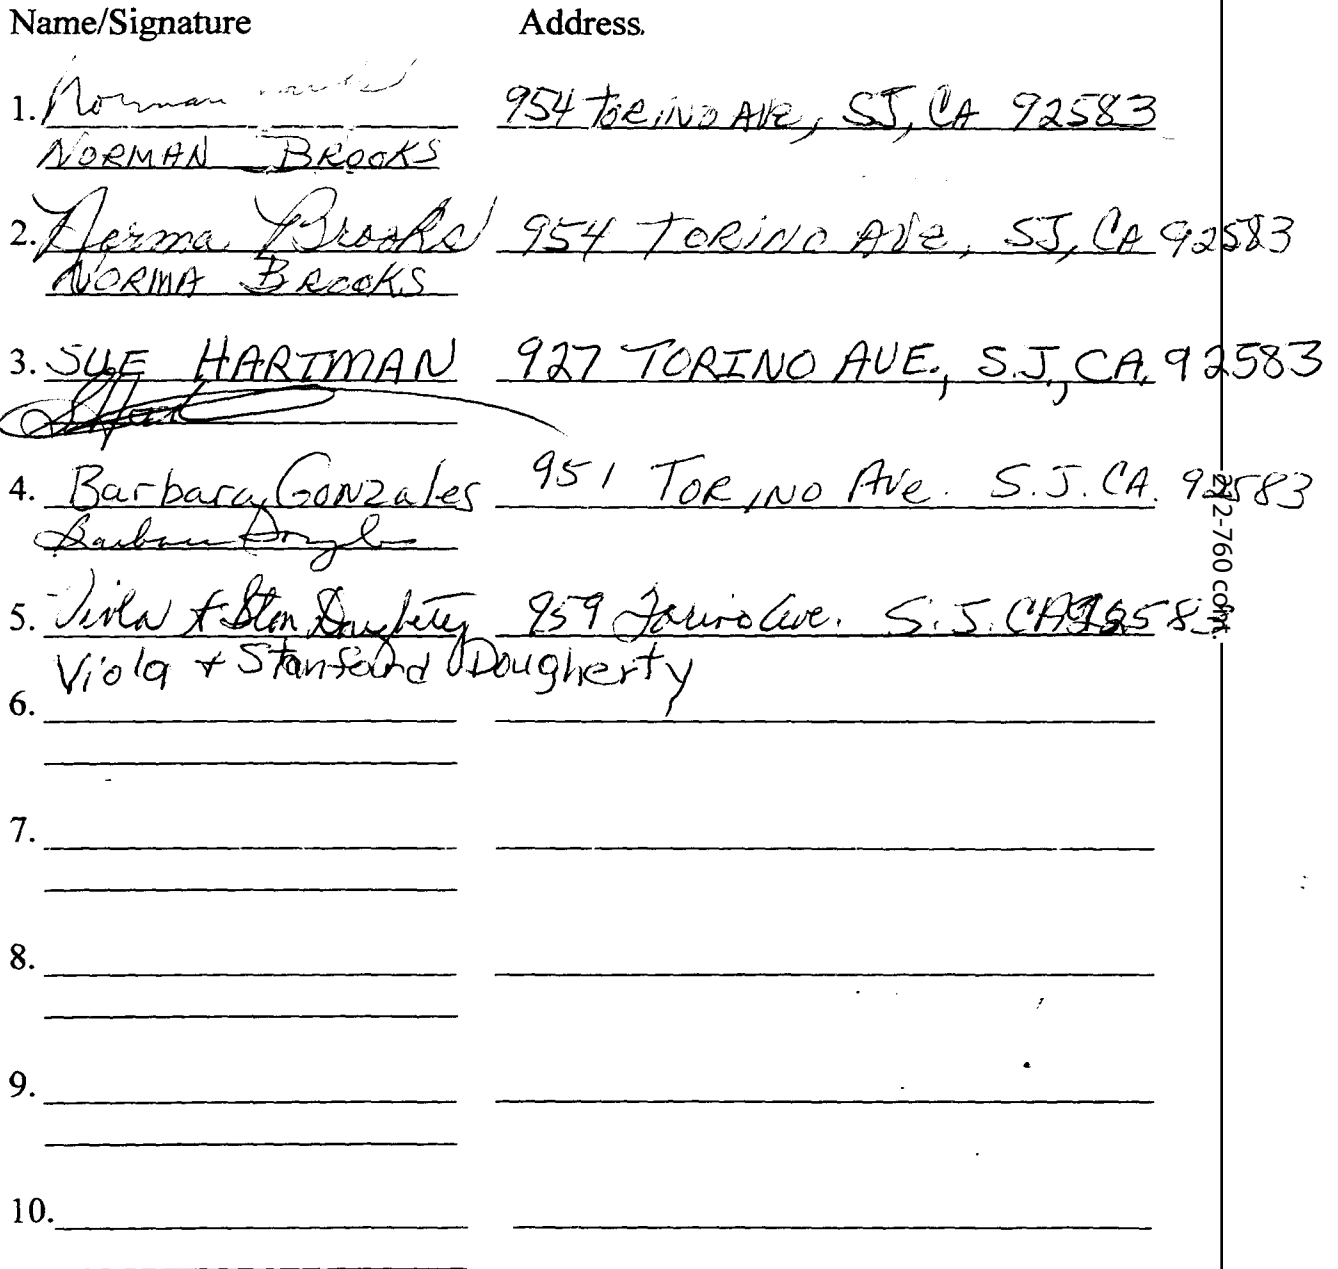 Name/Signature Address.
1. Norman 954 TORINO AVE, SJ, CA 92583
NORMAN BROOKS
2. Norma Brooks 954 TORINO AVE, SJ, CA 92583
NORMA BROOKS
3. SUE HARTMAN 927 TORINO AVE., S.J., CA. 92583
4. Barbara Gonzales 951 TORINO AVE. S.J. CA. 92583
Barbara Gonzales
5. Viola & Stan Dougherty 959 Torino Ave. S.J. CA 92583
Viola & Stanford Dougherty
6.
7.
8.
9.
10.
212-760 cont.